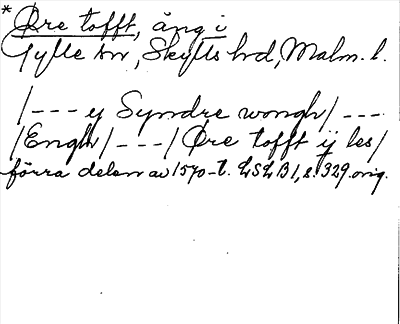 * Øre tofft, äng i
Gylle sn, Skytts hd, Malm. l.
/--- ey Syndre wongh/---
/Engh/---/Øre tofft ij les/
förra delen av 1570-t. LSLB1, s. 329 orig.